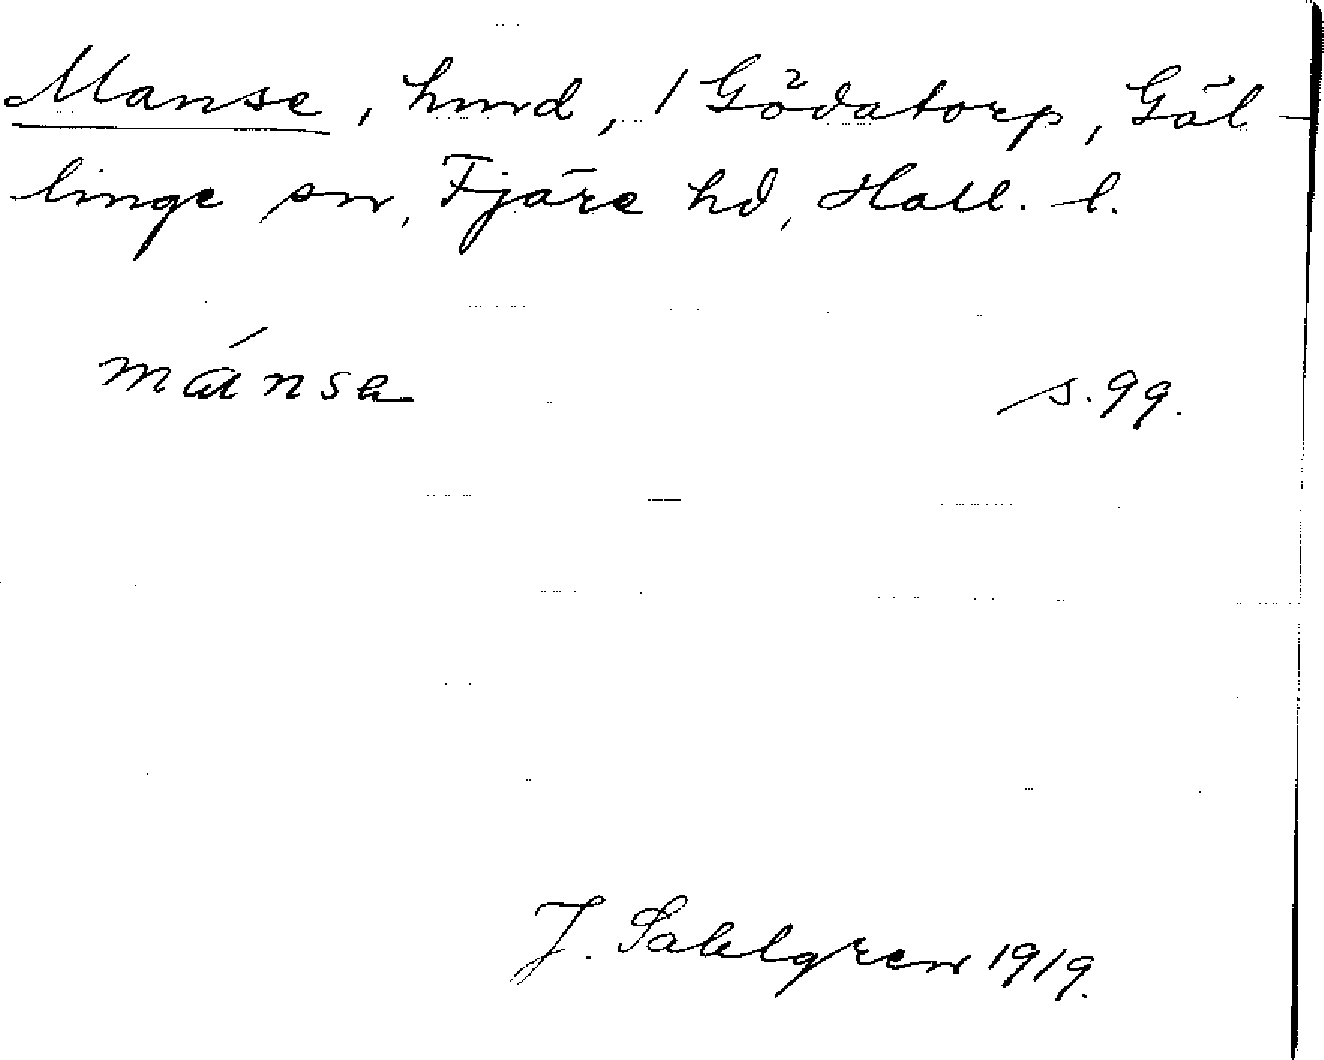 Manse, hund, 1 Gödatorp, Gäl-
linge sn, Fjäre hd, Hall. l.
mánsa s. 99.
J. Sahlgren 1919.